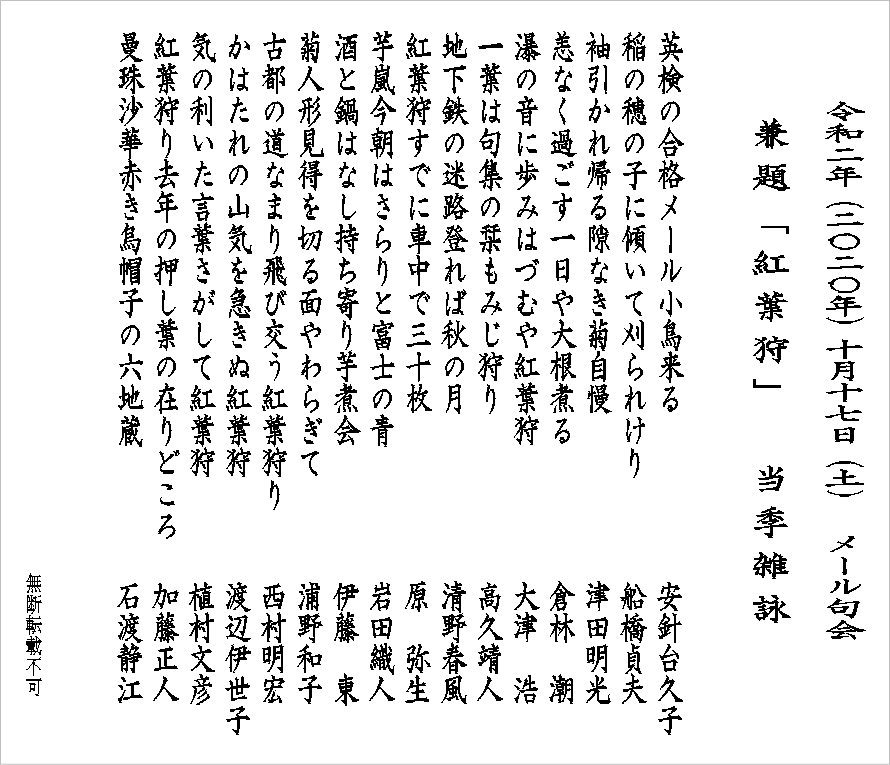 令和二年（二〇二〇年）十月十七日（土）　メール句会
兼題「紅葉狩」　当季雑詠
英検の合格メール小鳥来る　安針台久子
稲の穂の子に傾いて刈られけり　船橋貞夫
袖引かれ帰る隙なき菊自慢　津田明光
恙なく過ごす一日や大根煮る　倉林　潮
瀑の音に歩みはづむや紅葉狩　大津　浩
一葉は句集の栞もみじ狩り　高久靖人
地下鉄の迷路登れば秋の月　清野春風
紅葉狩すでに車中で三十枚　原　弥生
芋嵐今朝はさらりと富士の青　岩田織人
酒と鍋はなし持ち寄り芋煮会　伊藤　東
菊人形見得を切る面やわらぎて　浦野和子
古都の道なまり飛び交う紅葉狩り　西村明宏
かはたれの山気を急きぬ紅葉狩　渡辺伊世子
気の利いた言葉さがして紅葉狩　植村文彦
紅葉狩り去年の押し葉の在りどころ　加藤正人
曼珠沙華赤き烏帽子の六地蔵　石渡静江
無断転載不可